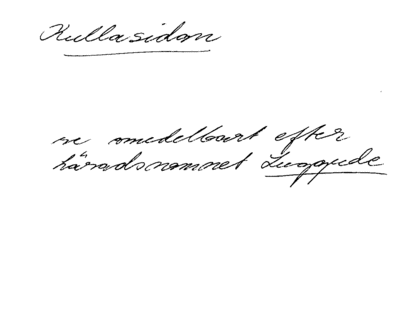 Kullasidan
se omedelbart efter
häradsnamnet Luggude